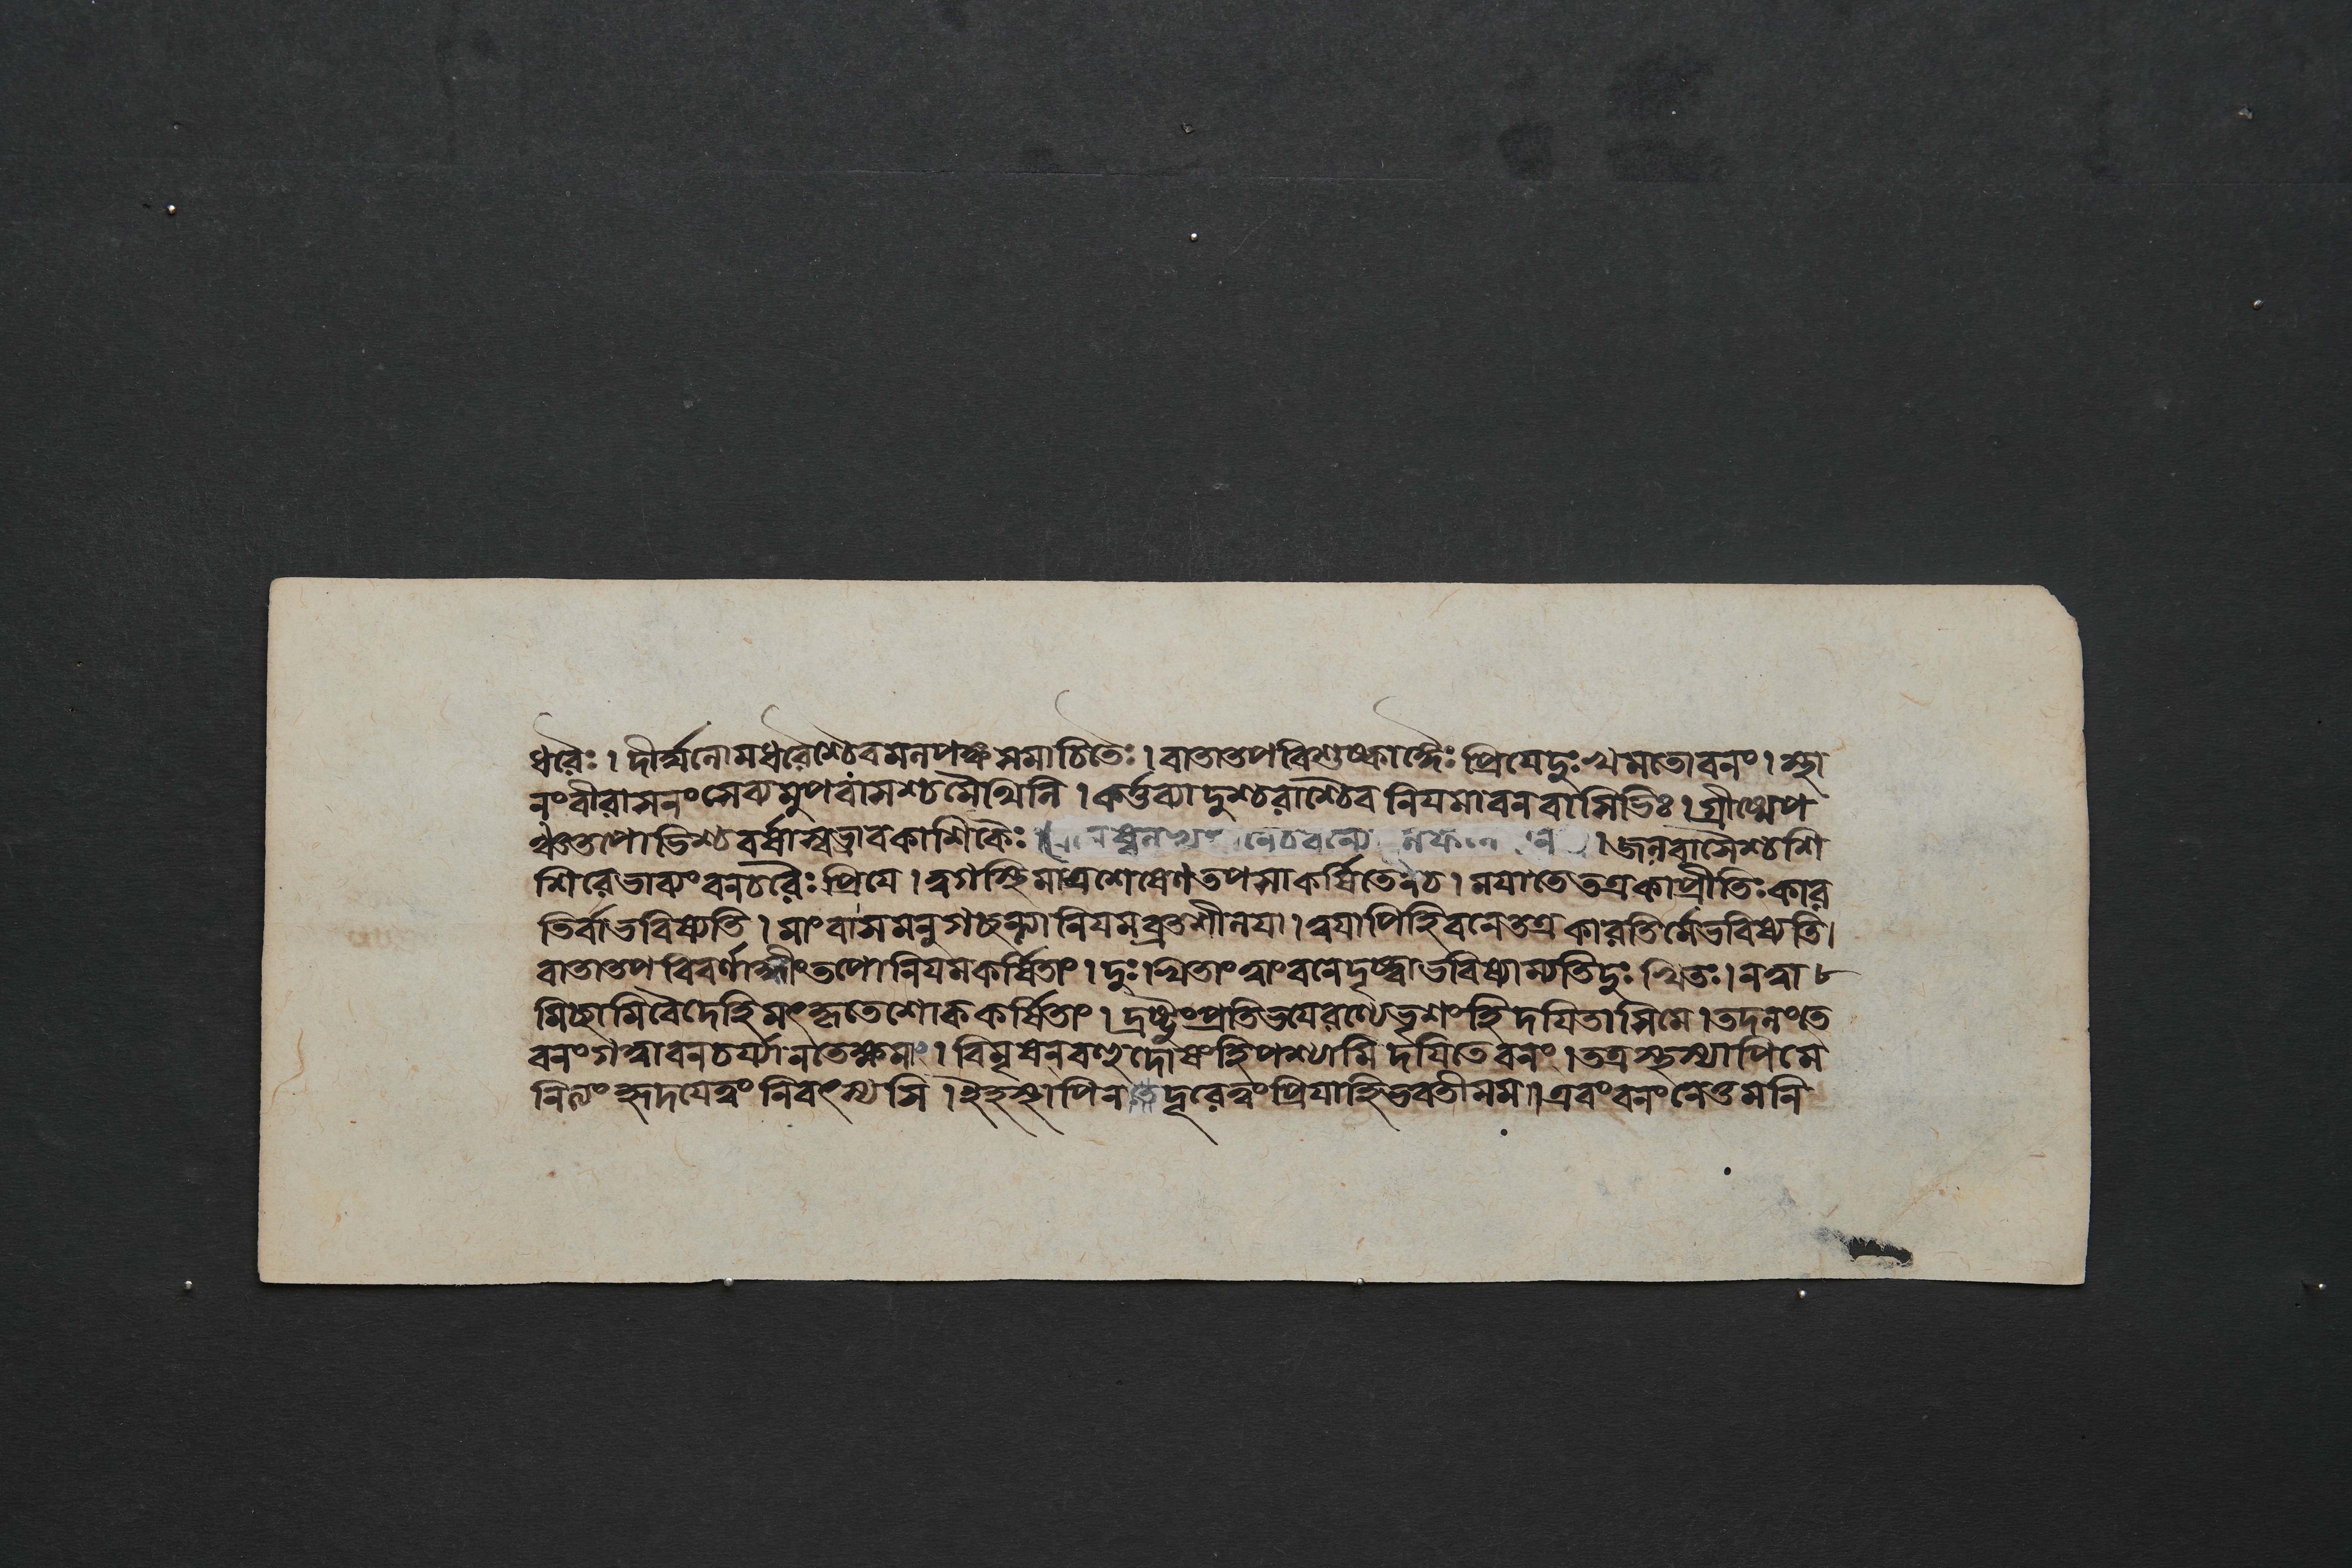 ধরৈঃ। দীর্ঘলোমধরৈশ্চৈব মলপঙ্কসমাচিতৈঃ। বাতাতপবিশুষ্কাঙ্গৈঃ প্রিযেদুঃখমতোবনং। স্থা
নংবীরাসনংসেব্যমুপবাসশ্চমৈথিলি। কর্ত্তব্যাদুশ্চরাশ্চৈব নিযমাবনবাসিভিঃ। গ্রীষ্মেপ
ঞ্চতপোভিশ্চবর্ষাস্বভ্রাবকাশিকৈঃ। জলবাসৈশ্চশি
শিরেভাব্যংবনচরৈঃ প্রিযে। ত্বগস্থিমাত্রশেষেণতপসাকর্ষিতেনচ। মযাতেতত্রকাপ্রীতিঃকার
তির্বাভবিষ্যতি। মাংবাসমনুগচ্ছন্ত্যা নিযমব্রতশীলযা। ত্বযাপিহিবনেতত্রকারতির্মেভবিষ্যতি।
বাতাতপবিবর্ণাঙ্গীংতপোনিযমকর্ষিতাং। দুঃখিতাংত্বাংবনেদৃষ্ট্বাভবিষ্যাম্যতিদুঃখিতঃ। নত্বা
মিচ্ছামিবৈদেহিমৎকৃতেশোককর্ষিতাং। দ্রষ্টুংপ্রতিভযেরণ্যেভৃশংহিদযিতাসিমে। তদলংতে
বনংগত্বাবনচর্য্যানতেক্ষমা। বিমৃষেনবহুদোষংহিপশ্যামি দযিতেবনং। তত্রস্থস্যাপিমে
নিত্যংহৃদযেত্বং নিবৎস্যসি। ইহস্থাপিনতেদূরেত্বংপ্রিযাহিভবতীমম॥ এবংবনংনেতুমনি